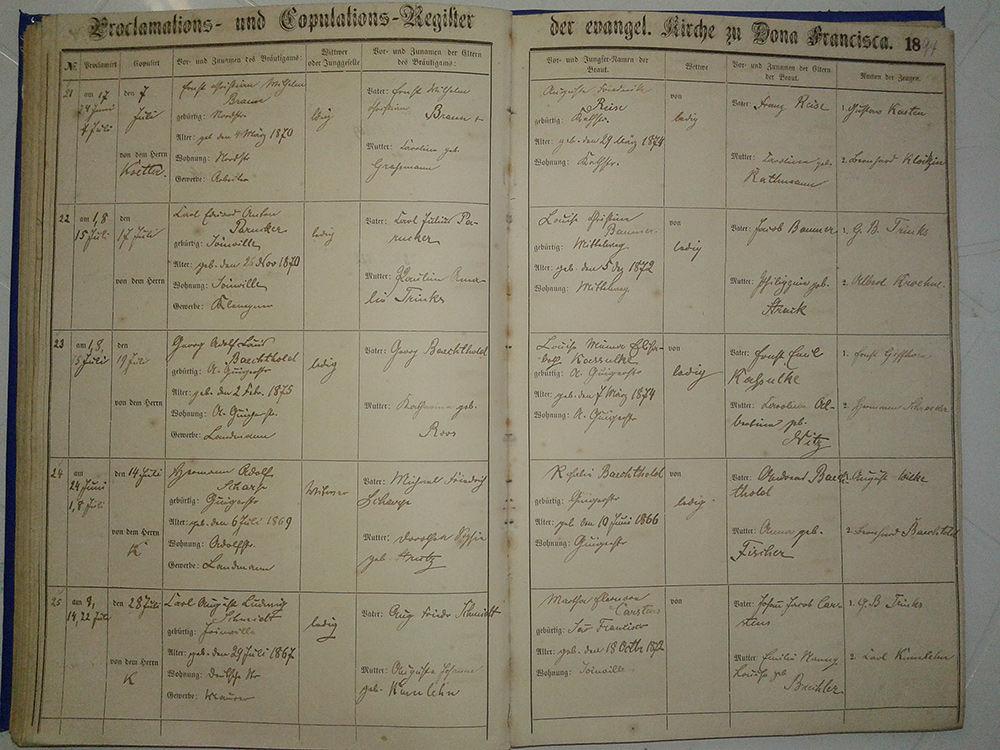 Proclamations- und Copulations-Register
der evangel. Kirche zu Dona Francisca. 1894
№
Proclamirt
Copulirt
Vor- und Zunamen des Bräutigams:
Wittwer oder Junggeselle
Vor- und Zunamen der Eltern des Bräutigams:
Vor- und Jungfer-Namen der Braut.
Wittwe
Vor- und Zunamen der Eltern der Braut.
Namen der Zeugen.
21
am 17
24 Juni
1 Juli
den 7
Juli
von dem Herrn
Ernst Christian Wilhelm
Braun
gebürtig: Nordstr
Alter: geb den 4 März 1870
Wohnung: Nordstr
Gewerbe: Arbeiter
ledig
Vater: Ernst Wilhelm
Christian
Braun
Mutter: Carolina geb.
Grassmann
Auguste Friederike
Reise
gebürtig:
Alter: geb. den 29 März 1874
Wohnung:
von
ledig
Vater: Franz Reise
Mutter: Carolina geb.
Rathmann
1. Gustav Kasten
2. Leonhard
22
am 1, 8
15 Juli
den
17 Juli
von dem Herrn
Carl Eduard Anton
Parucker
gebürtig: Joinville
Alter: geb. den 26 Nov 1870
Wohnung: Joinville
Gewerbe: Klempner
ledig
Vater: Carl Julius Pa-
rucker
Mutter: Paulin Ama-
lie Trinks
Louise Christine
Banner
gebürtig: Mittelweg
Alter: geb. den 5 Dez 1872
Wohnung: Mittelweg
von
ledig
Vater: Jacob Banner
Mutter: Philippine geb.
Struck
1. G. B. Trinks
2. Albert Kroehne
23
am 1, 8,
15 Juli
den
19 Juli
von dem Herrn
Georg Adolf Louis
Baechthold
gebürtig: A. Guigerstr
Alter: geb. den 2 Febr. 1875
Wohnung: A. Guigerstr.
Gewerbe: Landmann
ledig
Vater: Georg Baechthold
Mutter: Katharina geb.
Roos
Louise Minna Elisa-
beth Kassulke
gebürtig: A. Guigerstr
Alter: geb. den 7 März 1874
Wohnung: A. Guigerstr
von
ledig
Vater: Ernst Emil
Kassulke
Mutter: Carolina Al-
bertina geb.
Nitz
1. Ernst
2. Hermann Schroeder
24
am
24 Juni
1, 8 Juli
den 14 Juli
von dem Herrn
K
Hermann Adolf
Scharf
gebürtig: Guigerstr
Alter: geb. den 6 Juli 1869
Wohnung: Adolfstr.
Gewerbe: Landmann
Witwer
Vater: Michael Friedrich
Mutter: Dorothea Sophie
geb.
Baechthold
gebürtig: Guigerstr
Alter: geb den 10 Juni 1866
Wohnung: Guigerstr
von
ledig
Vater: Andreas Baech-
thold
Mutter: Anna geb.
Fischer
1. August Wilke
2. Leonhard Baechthold
25
am 8,
14, 22 Juli
den 28 Juli
von dem Herrn
K
Carl August Ludwig
Schmidt
gebürtig: Joinville
Alter: geb. den 29 Juli 1867
Wohnung: Deutsche Str
Gewerbe: Maurer
ledig
Vater: Aug Friedr Schmidt
Mutter: Auguste Johanne
geb. Kumlehn
Martha Eleonore
Carstens
gebürtig: São Francisco
Alter: geb. den 18 Octbr 1872
Wohnung: Joinville
von
Vater: Johann Jacob Cars-
tens
Mutter: Emilie Nanny
Louise geb
1. G. B Trinks
2. Carl Kumlehn